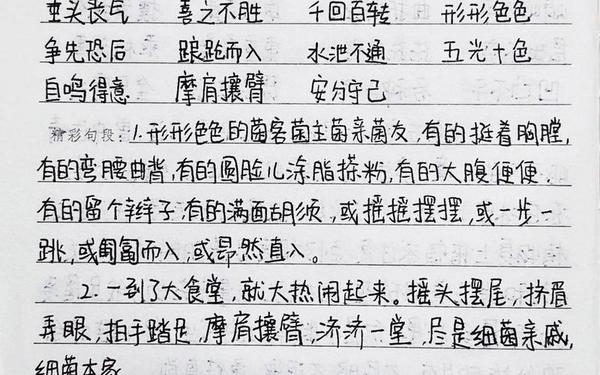 垂头丧气 喜之不胜 千回百转 形形色色
争先恐后 踉跄而入 水泄不通 五光十色
自鸣得意 摩肩攘臂 安分守己
精彩句段:1.形形色色的菌客菌主菌亲菌友,有的挺着胸膛,
有的弯腰曲背,有的圆脸儿涂脂搽粉,有的大腹便便,
有的留个辫子,有的满面胡须,或摇摇摆摆,或一步一
跳,或匍匐而入,或昂然直入。
2.一到了大食堂,就大热闹起来。摇头摆尾,挤眉
弄眼,拍手踏足,摩肩攘臂,济济一堂,尽是细菌亲戚,
细菌本家